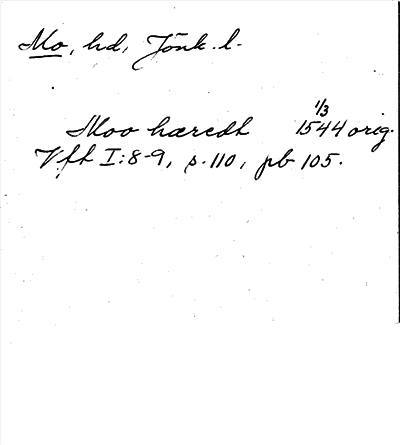 Mo, hd, Jönk. l.
1/3
Moo hæredh 1544 orig.
Vfh I:8-9, s. 110, pb 105.